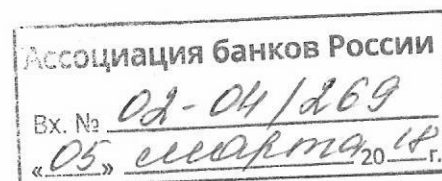 Ассоциация банков России
Вх. № 02-04/269
«05» марта 2018 г.